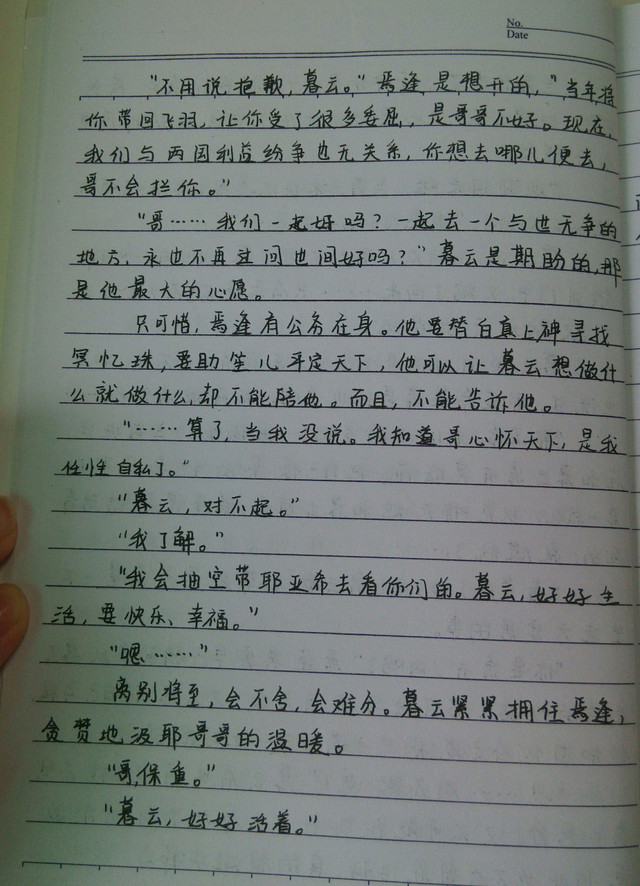 No.
Date
"不用说抱歉，暮云。"焉逢是想开的，"当年将
你带回飞羽，让你受了很多委屈，是哥哥不好。现在，
我们与两国利益纷争也无关系，你想去哪儿便去，
哥不会拦你。"
"哥……我们一起好吗？一起去一个与世无争的
地方，永也不再过问世间好吗？"暮云是期盼的，那
是他最大的心愿。
只可惜，焉逢有公务在身。他要替白真上神寻找
冥忆珠，要助笙儿平定天下，他可以让暮云想做什
么就做什么，却不能陪他。而且，不能告诉他。
"……算了，当我没说。我知道哥心怀天下，是我
任性自私了。"
"暮云，对不起。"
"我了解。"
"我会抽空带耶亚希去看你们的。暮云，好好生
活，要快乐、幸福。"
"嗯……"
离别将至，会不舍，会难分。暮云紧紧拥住焉逢，
贪赞地汲耶哥哥的温暖。
"哥，保重。"
"暮云，好好活着。"